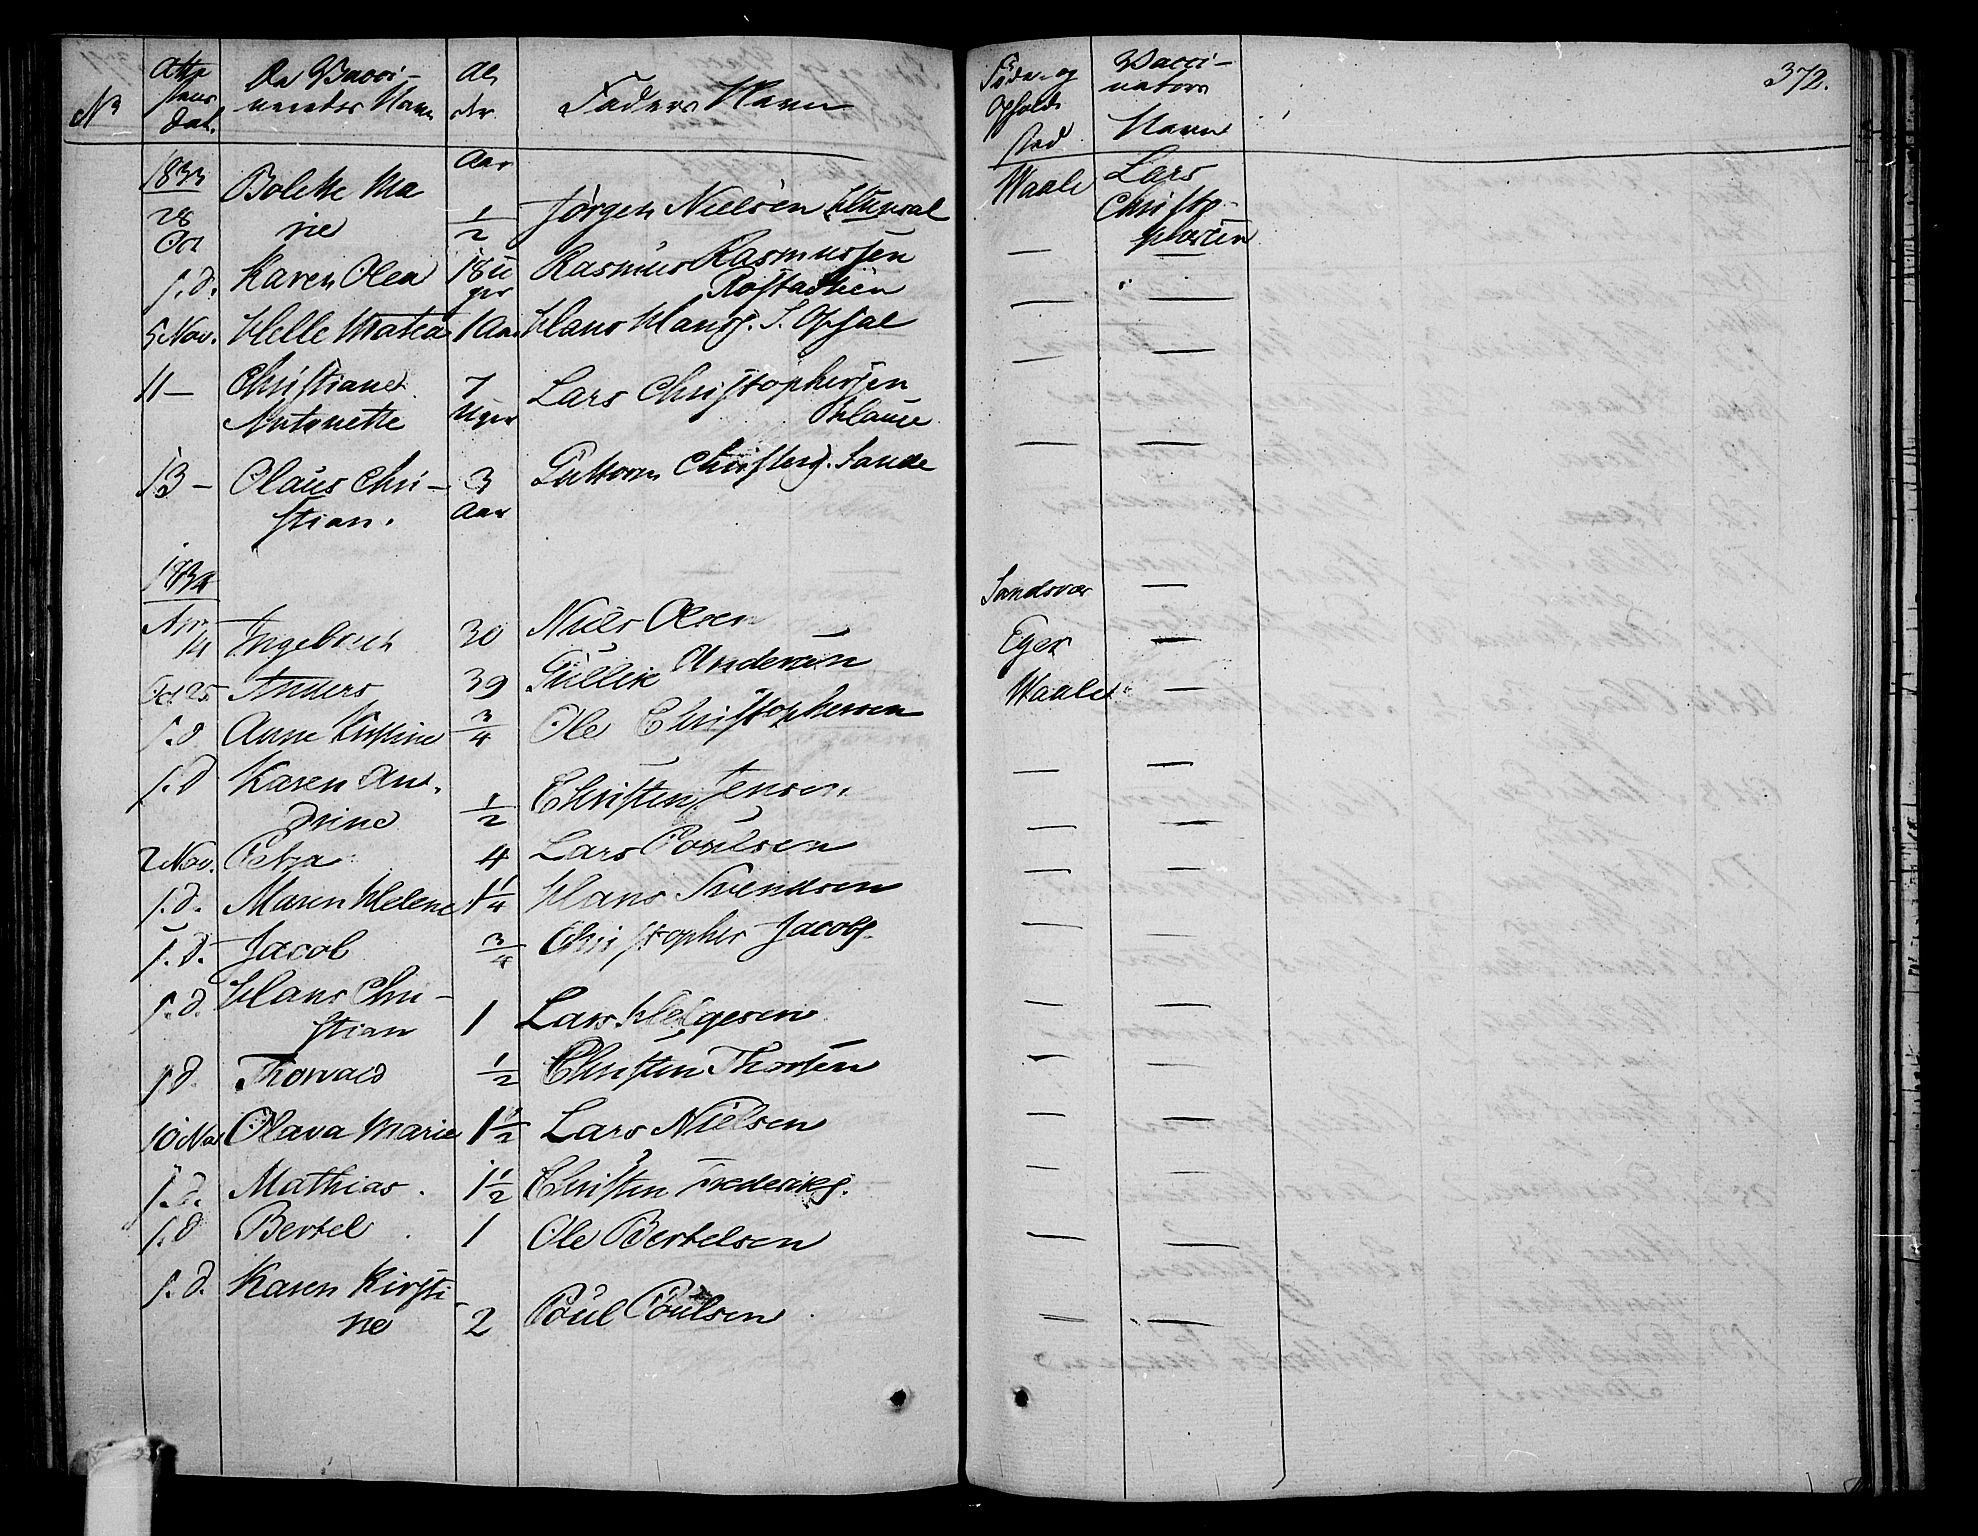 372.
No
Atte
stens
Dat.
De Vacci-
neredes Navn
Al
der
Faders Navn
Føde- og
Opholds
sted
Vacci-
nators
Navn
1833
Aar
28 Bolette Ma
Oct rie 1/2 Jørgen Nielsen Waale Lars
Christo-
phersen
s.d. Karen Olea 18 U Rasmus Rasmussen — —
ger
5 Nov. Helle Matea 1 Aar Hans Hans. S. Opsal — —
11 — Christiane 7 Lars Christophersen — —
Antonette Uger
13 — Olaus Chri- 3 Guttorm Christens. Sande — —
stian. Aar
1834
Apr.
14 Ingeborg 30 Niels Olsen Sandsvær —
Oct 25 Anders 39 Gullik Andersen Eger —
s.d Anne Kirstine 3/4 Ole Christophersen Waale —
s.d Karen An-
drine 1/2 Christen Jensen. — —
2 Nov. Petra 4 Lars Poulsen — —
s.d. Maren Helene 1 1/4 Hans Svendsen — —
s.d. Jacob 3/4 Christopher Jacobs. — —
s.d. Hans Chri-
stian 1 Lars Helgesen — —
s.d. Thorvald 1/2 Christen Thorsen — —
10 Nov Olava Marie 1 1/2 Lars Nielsen — —
s.d. Mathias. 1 1/2 Christen Frederiks. — —
s.d Bertel 1 Ole Bertelsen — —
s.d. Karen Kirsti-
ne 2 Poul Poulsen — —